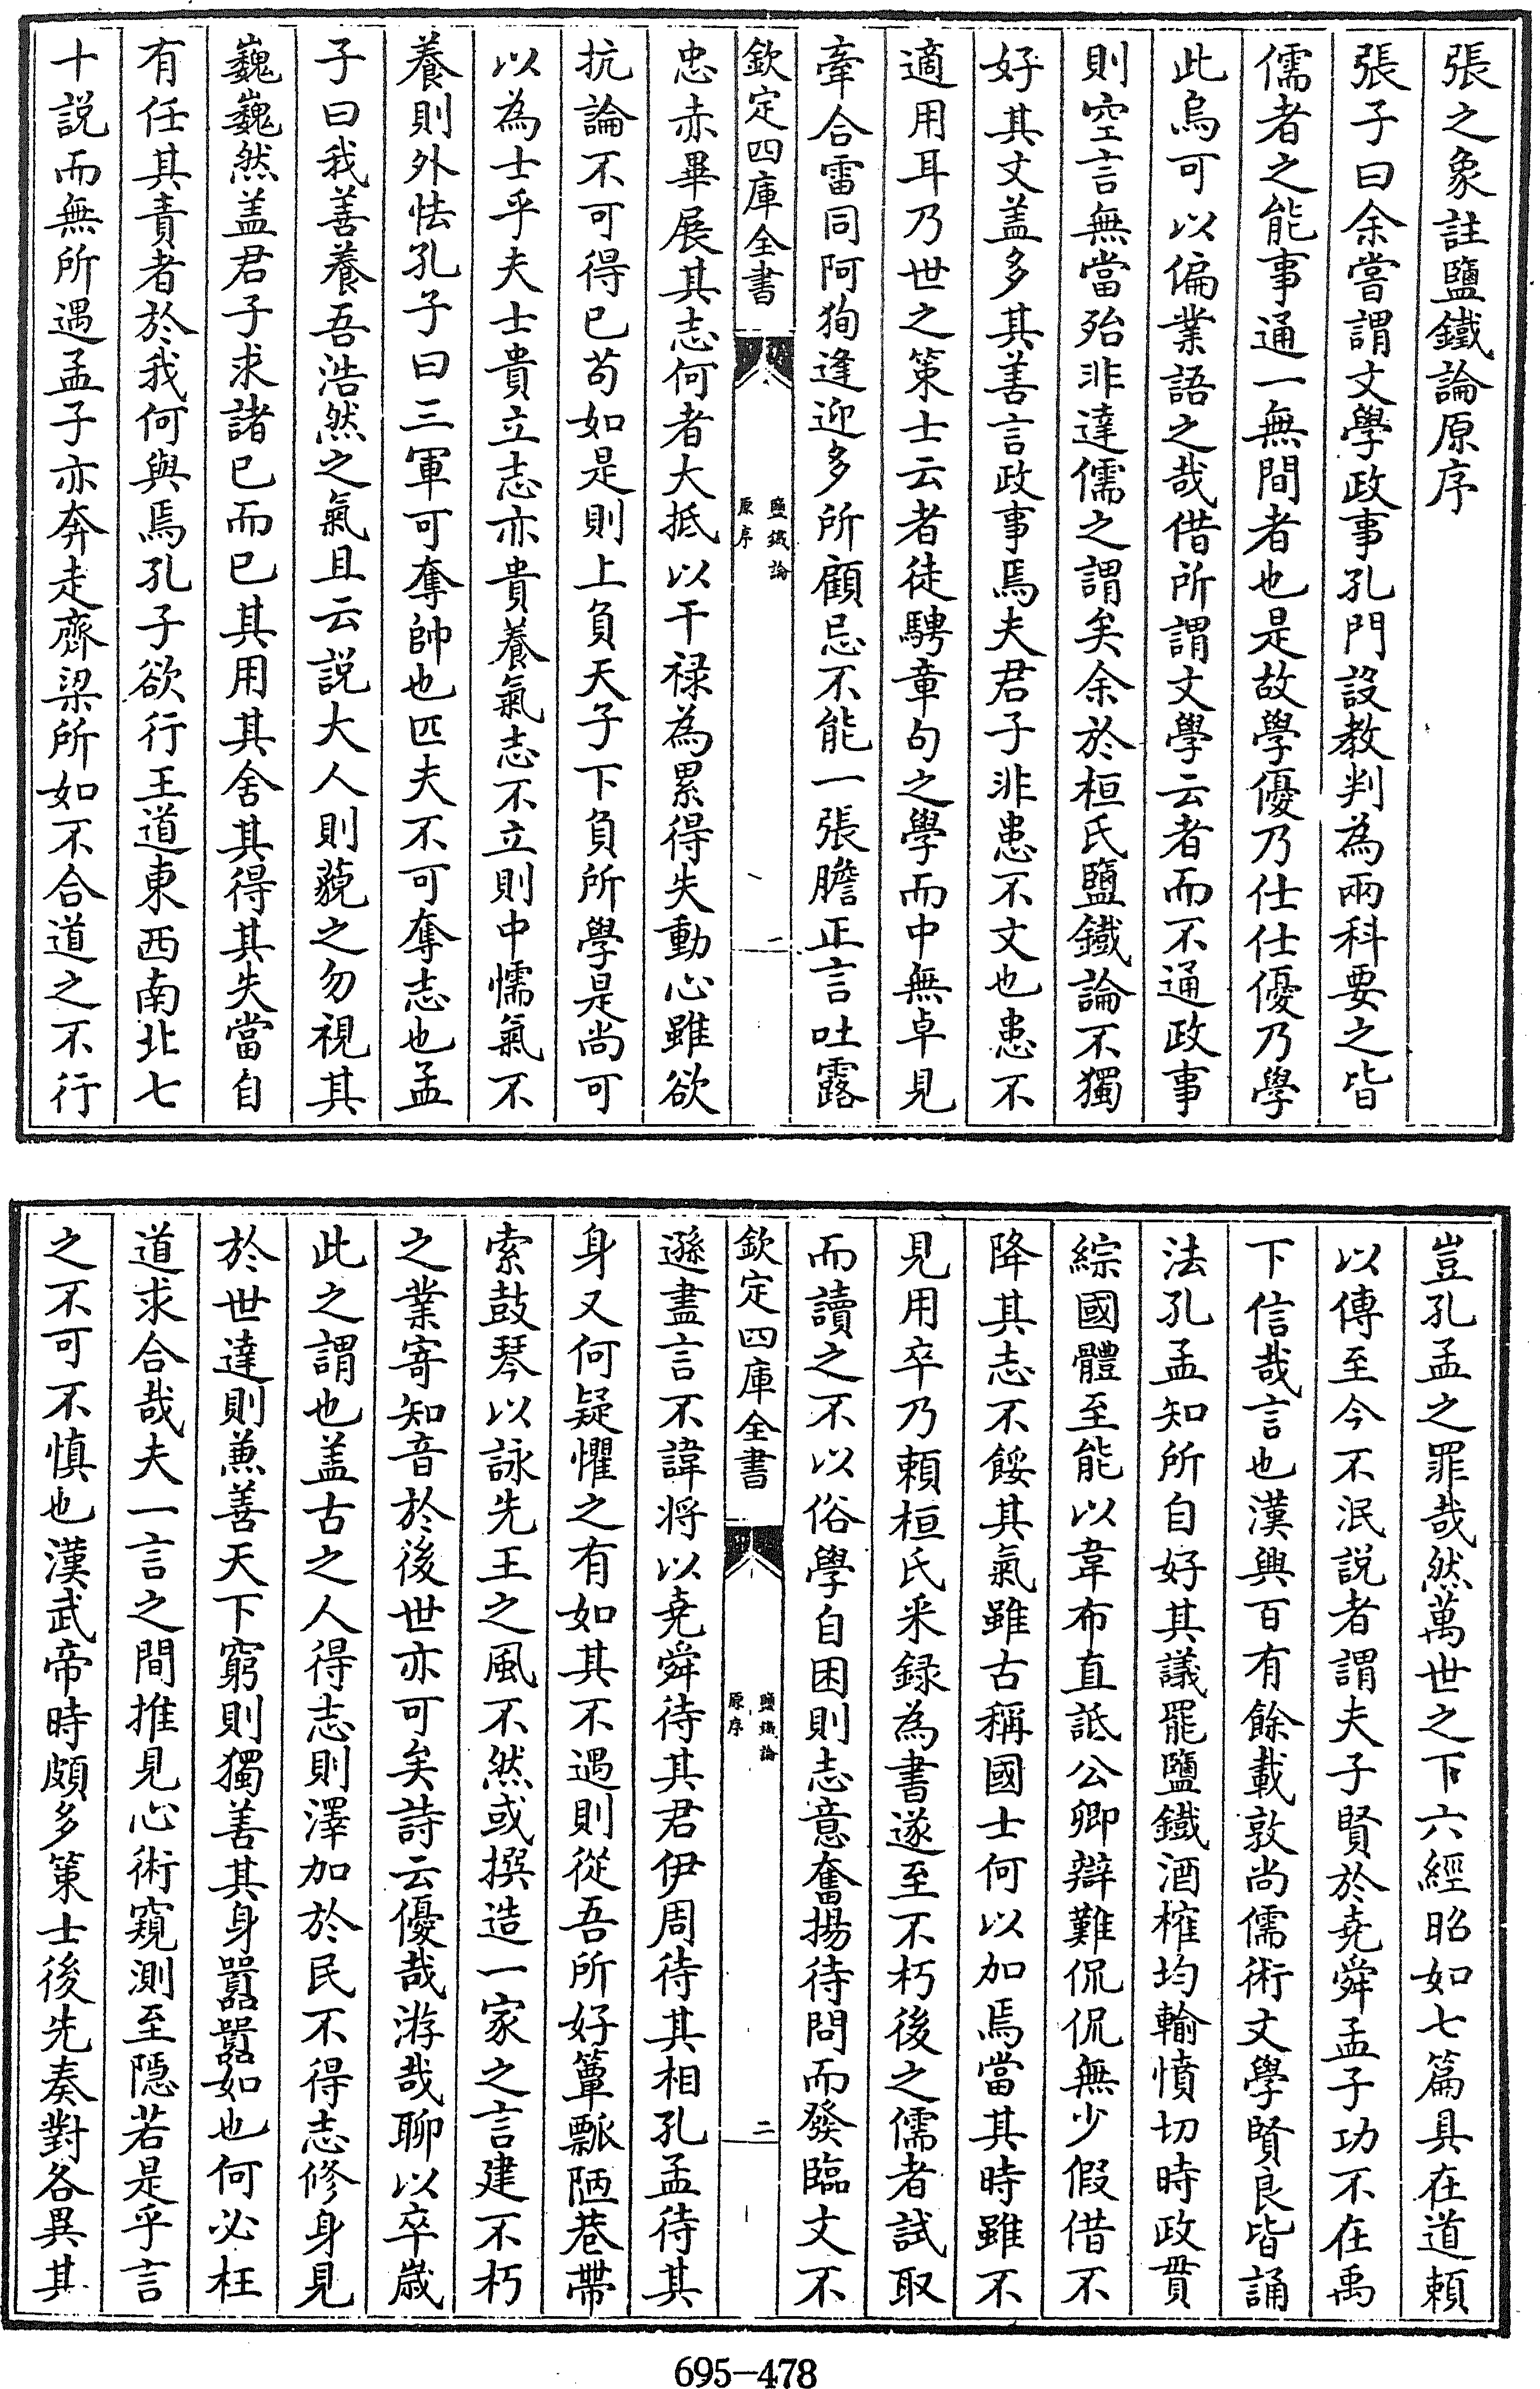 張之象註鹽鐵論原序
張子曰余嘗謂文學政事孔門設教判為兩科要之皆
儒者之能事通一無間者也是故學優乃仕仕優乃學
此烏可以偏業語之哉借所謂文學云者而不通政事
則空言無當殆非達儒之謂矣余於桓氏鹽鐵論不獨
好其文盖多其善言政事焉夫君子非患不文也患不
適用耳乃世之策士云者徒騁章句之學而中無卓見
牽合雷同阿狥逢迎多所顧忌不能一張膽正言吐露
欽定四庫全書
鹽鐵論
原序
一
忠赤畢展其志何者大抵以干禄為累得失動心雖欲
抗論不可得已苟如是則上負天子下負所學是尚可
以為士乎夫士貴立志亦貴養氣志不立則中懦氣不
養則外怯孔子曰三軍可奪帥也匹夫不可奪志也孟
子曰我善養吾浩然之氣且云説大人則藐之勿視其
巍巍然盖君子求諸已而已其用其舍其得其失當自
有任其責者於我何與焉孔子欲行王道東西南北七
十説而無所遇孟子亦奔走齊梁所如不合道之不行
豈孔孟之罪哉然萬世之下六經昭如七篇具在道賴
以傳至今不泯説者謂夫子賢於堯舜孟子功不在禹
下信哉言也漢興百有餘載敦尚儒術文學賢良皆誦
法孔孟知所自好其議罷鹽鐵酒榷均輸憤切時政貫
綜國體至能以韋布直詆公卿辯難侃侃無少假借不
降其志不餒其氣雖古稱國士何以加焉當其時雖不
見用卒乃賴桓氏采録為書遂至不朽後之儒者試取
而讀之不以俗學自困則志意奮揚待問而發臨文不
欽定四庫全書
鹽鐵論
原序
二
遜盡言不諱将以堯舜待其君伊周待其相孔孟待其
身又何疑懼之有如其不遇則從吾所好簞瓢陋巷帶
索鼓琴以詠先王之風不然或撰造一家之言建不朽
之業寄知音於後世亦可矣詩云優哉游哉聊以卒歲
此之謂也盖古之人得志則澤加於民不得志修身見
於世達則兼善天下窮則獨善其身囂囂如也何必枉
道求合哉夫一言之間推見心術窺測至隱若是乎言
之不可不慎也漢武帝時頗多策士後先奏對各異其
695-478